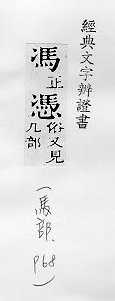 經典文字辨證書
馮正憑俗又見几部
(馬部, P68)